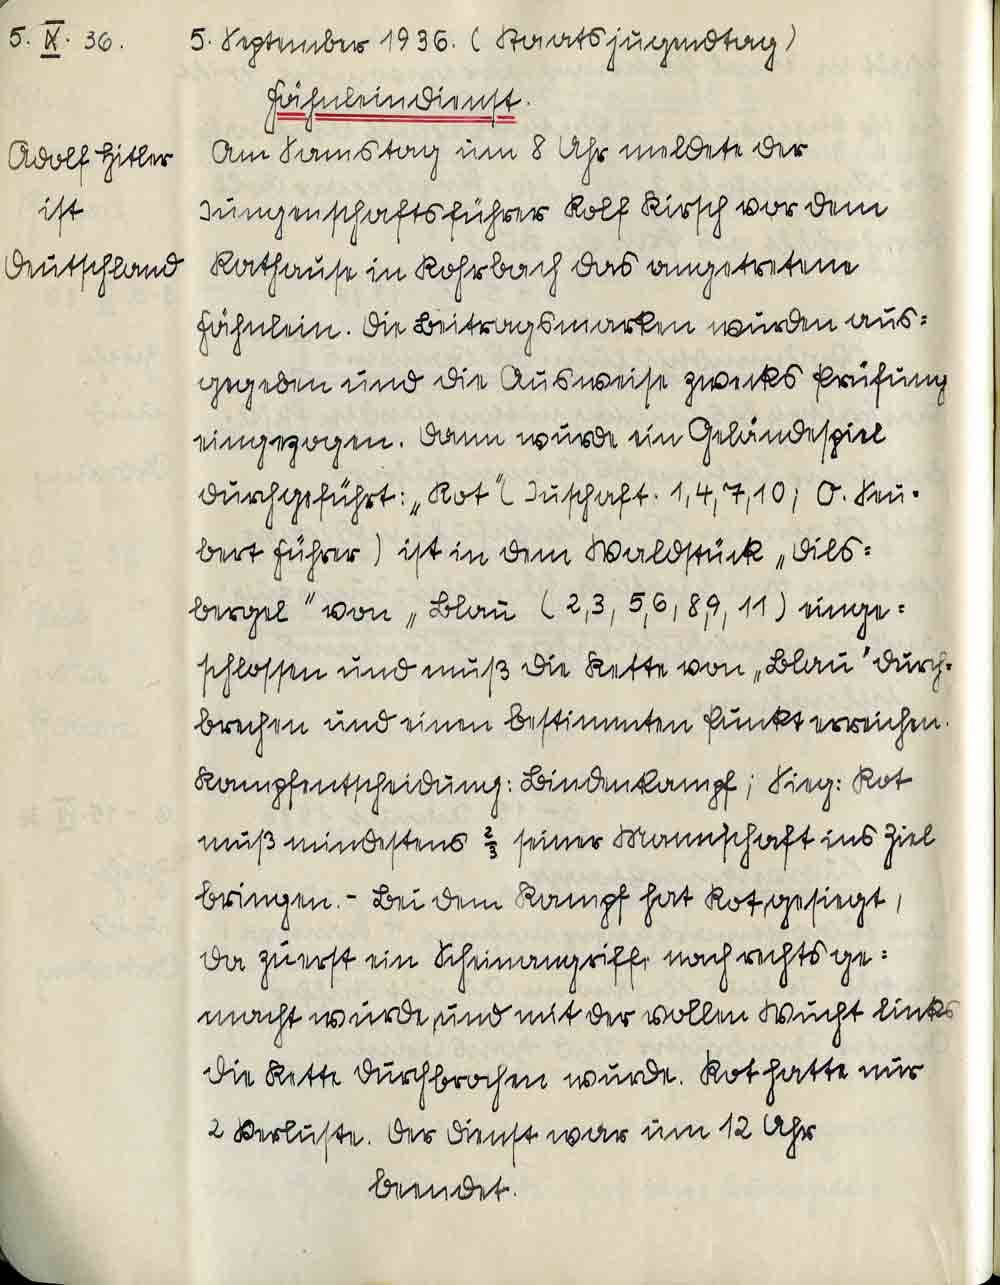 5. IX. 36.
5. September 1936. (Staatsjugendtag)
Fähnleindienst.
Adolf Hitler
ist
Deutschland
Am Samstag um 8 Uhr meldete der
Jungenschaftsführer Rolf Kirsch vor dem
Rathause in Rohrbach das angetretene
Fähnlein. Die Beitragsmarken wurden aus=
gegeben und die Ausweise zwecks Prüfung
eingezogen. Dann wurde ein Geländespiel
durchgeführt: „Rot" (Juschaft. 1,4,7,10; O. Seu-
bert Führer) ist in dem Waldstück „Dils=
bergel" von „Blau (2,3, 5,6, 8,9, 11) einge=
schlossen und muß die Kette von „Blau" durch-
brechen und einen bestimmten Punkt erreichen.
Kampfentscheidung: Bindenkampf; Sieg: Rot
muß mindestens 2/3 seiner Mannschaft ins Ziel
bringen. - Bei dem Kampf hat Rot gesiegt,
da zuerst ein Scheinangriff nach rechts ge=
macht wurde, und mit der vollen Wucht links
die Kette durchbrochen wurde. Rot hatte nur
2 Verluste. Der Dienst war um 12 Uhr
beendet.